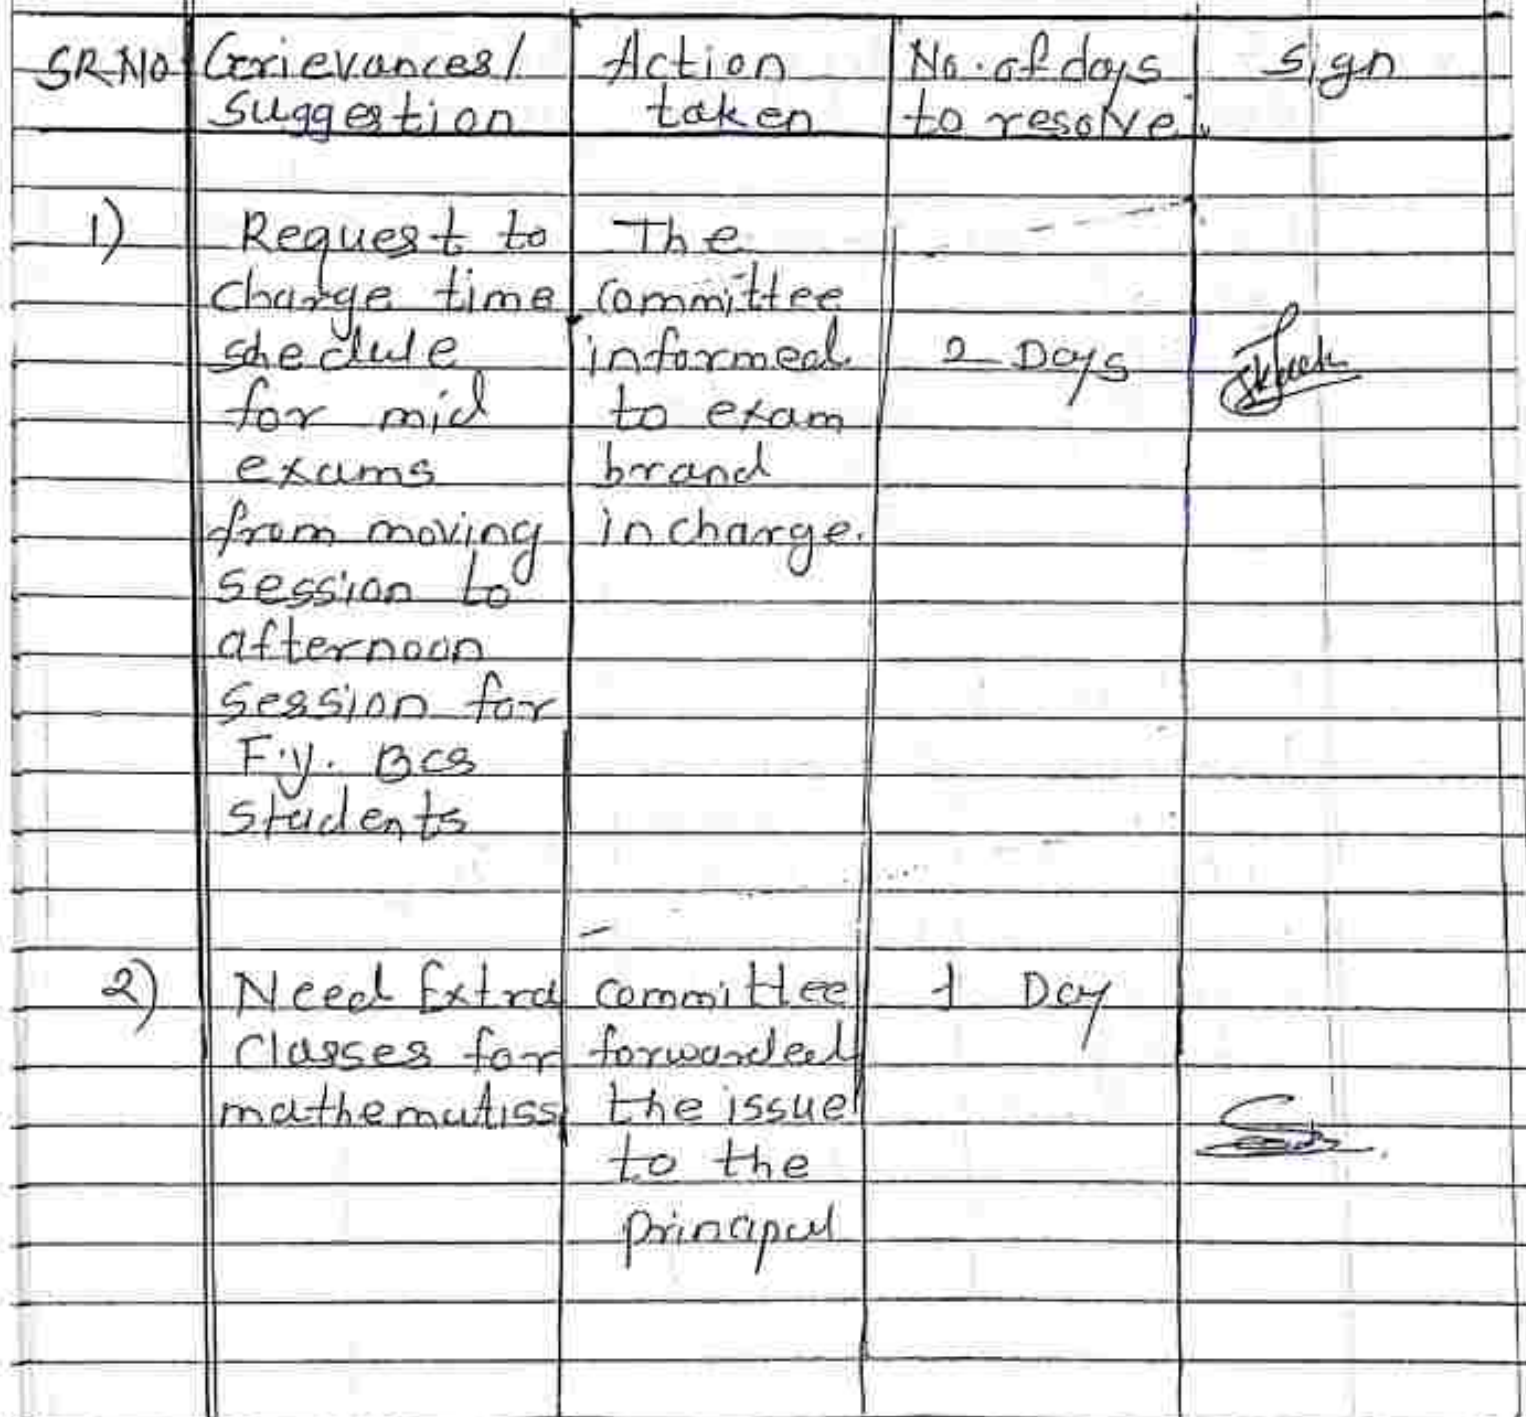 SR.NO Grievances/ Suggestion Action taken No. of days to resolve. Sign
1)
Request to
Change time
shedule
for mid
exams
from moving
session to
afternoon
session for
F.y. BCS
students
The
committee
informed
to exam
brand
incharge.
2 Days
2)
Need Extra
Classes for
mathematiss
committee
forwarded
the issue
to the
principal
1 Day